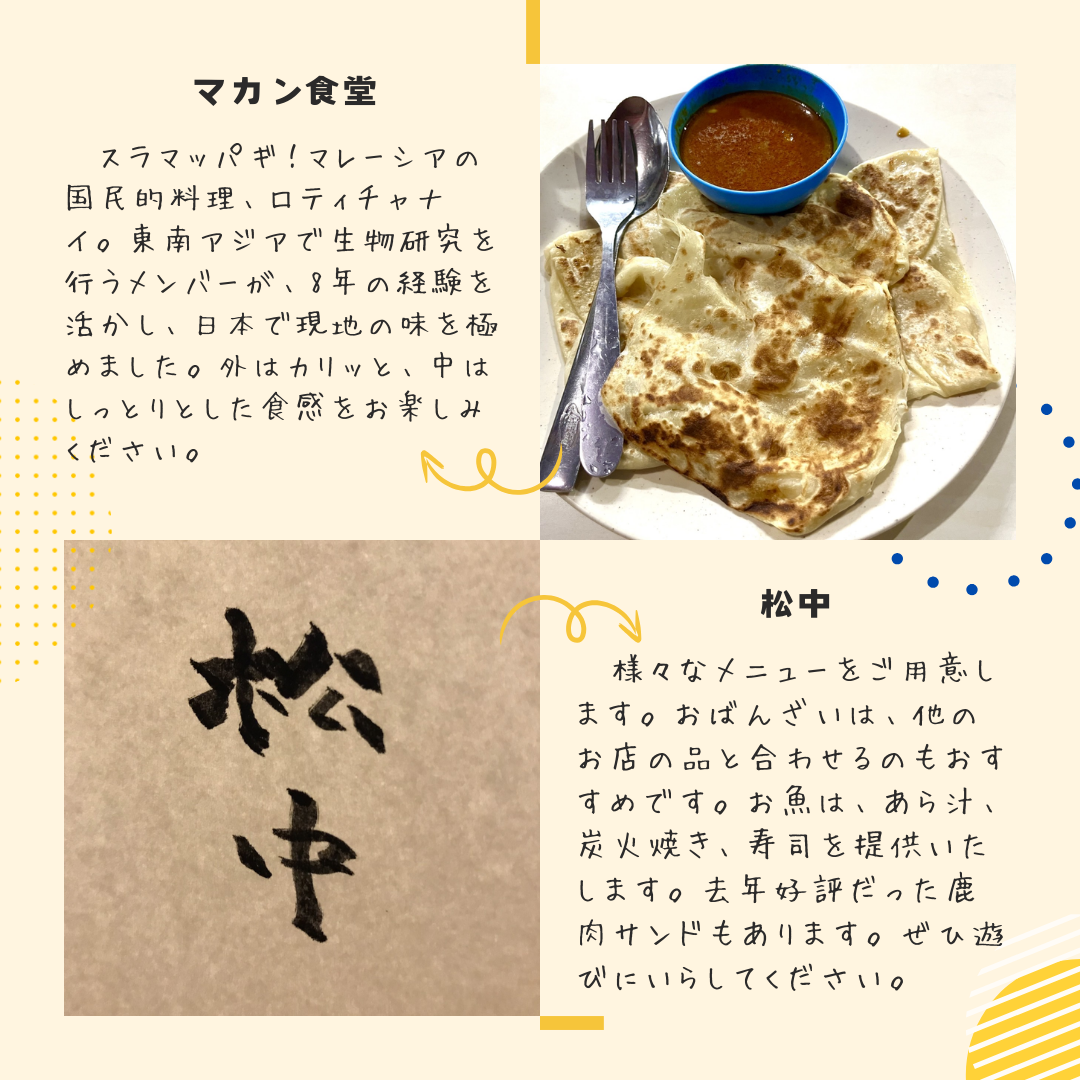 マカン食堂
スラマッパギ！マレーシアの
国民的料理、ロティチャナ
イ。東南アジアで生物研究を
行うメンバーが、8年の経験を
活かし、日本で現地の味を極
めました。外はカリッと、中は
しっとりとした食感をお楽しみ
ください。
松
中
松中
様々なメニューをご用意し
ます。おばんざいは、他の
お店の品と合わせるのもおす
すめです。お魚は、あら汁、
炭火焼き、寿司を提供いた
します。去年好評だった鹿
肉サンドもあります。ぜひ遊
びにいらしてください。